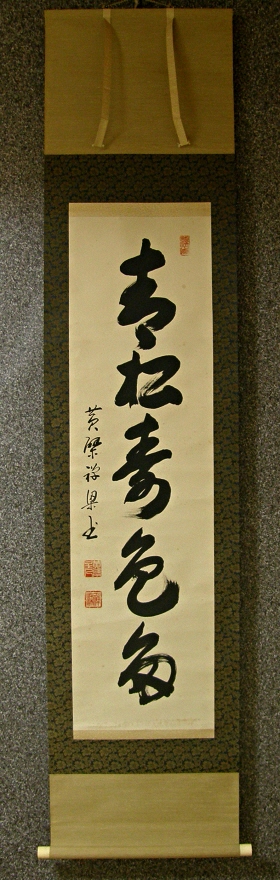 青松寿色多
黄檗祥果書